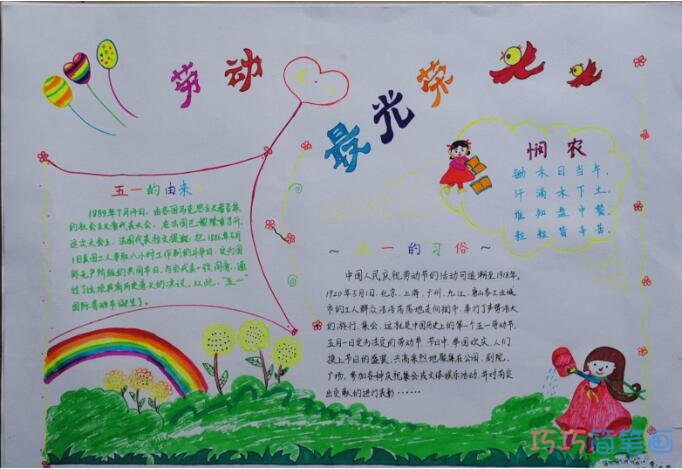 劳动
最光荣
五一的由来
1889年7月14日,由各国马克思主义者召集
的社会主义者代表大会,在法国巴黎隆重召开.
这次大会上,法国代表拉文提议:把1886年5月
1日美国工人争取八小时工作制的斗争日,定为国
际无产阶级的共同节日,与会代表一致同意,通
过了这项具有历史意义的决议,从此,"五一"
国际劳动节诞生了。
悯农
锄禾日当午,
汗滴禾下土,
谁知盘中餐,
粒粒皆辛苦.
~五一的习俗~
中国人民庆祝劳动节的活动可追溯至1918年.
1920年5月1日,北京、上海、广州、九江、唐山各工业城
市的工人群众浩浩荡荡地走向街市、举行了声势浩大
的游行、集会,这就是中国历史上的第一个五一劳动节,
五月一日定为法定的劳动节.节日中,举国欢庆,人们
换上节日的盛装,兴高采烈地聚集在公园、剧院、
广场,参加各种庆祝集会或文体娱乐活动,并对有突
出贡献的进行表彰······
巧巧简笔画